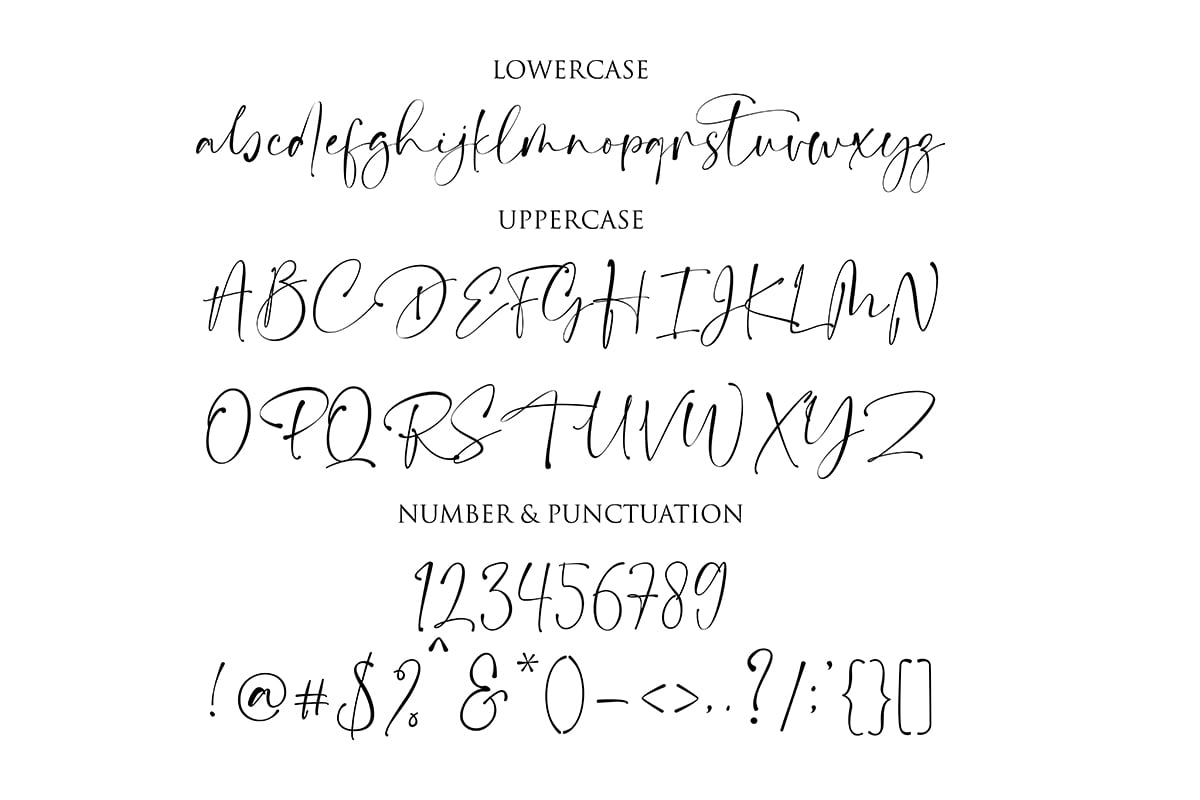 LOWERCASE
abcdefghijklmnopqrstuvwxyz
UPPERCASE
ABCDEFGHIJKLMN
OPQRSTUVWXYZ
NUMBER & PUNCTUATION
123456789
!@#$%^&*()-<>,.?/;'{}[]